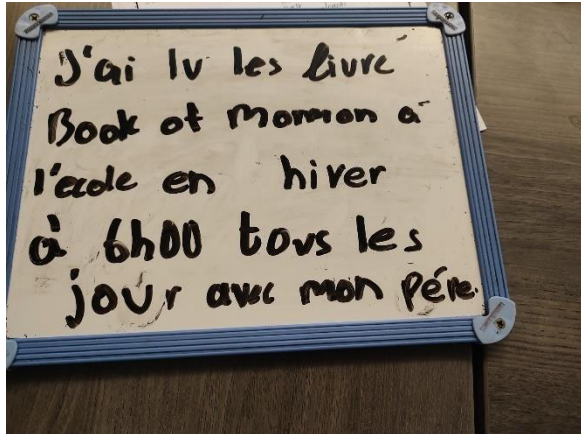 J'ai lu les livre
Book of Mormon à
l'ecole en hiver
à 6h00 tous les
jour avec mon pére.